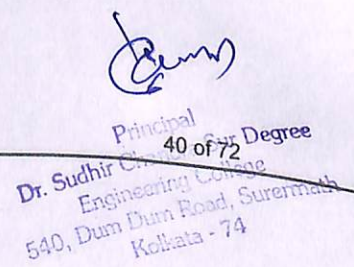 Principal
Dr. Sudhir Chandra Sur Degree
40 of 72
Engineering College
540, Dum Dum Road, Surermath
Kolkata - 74